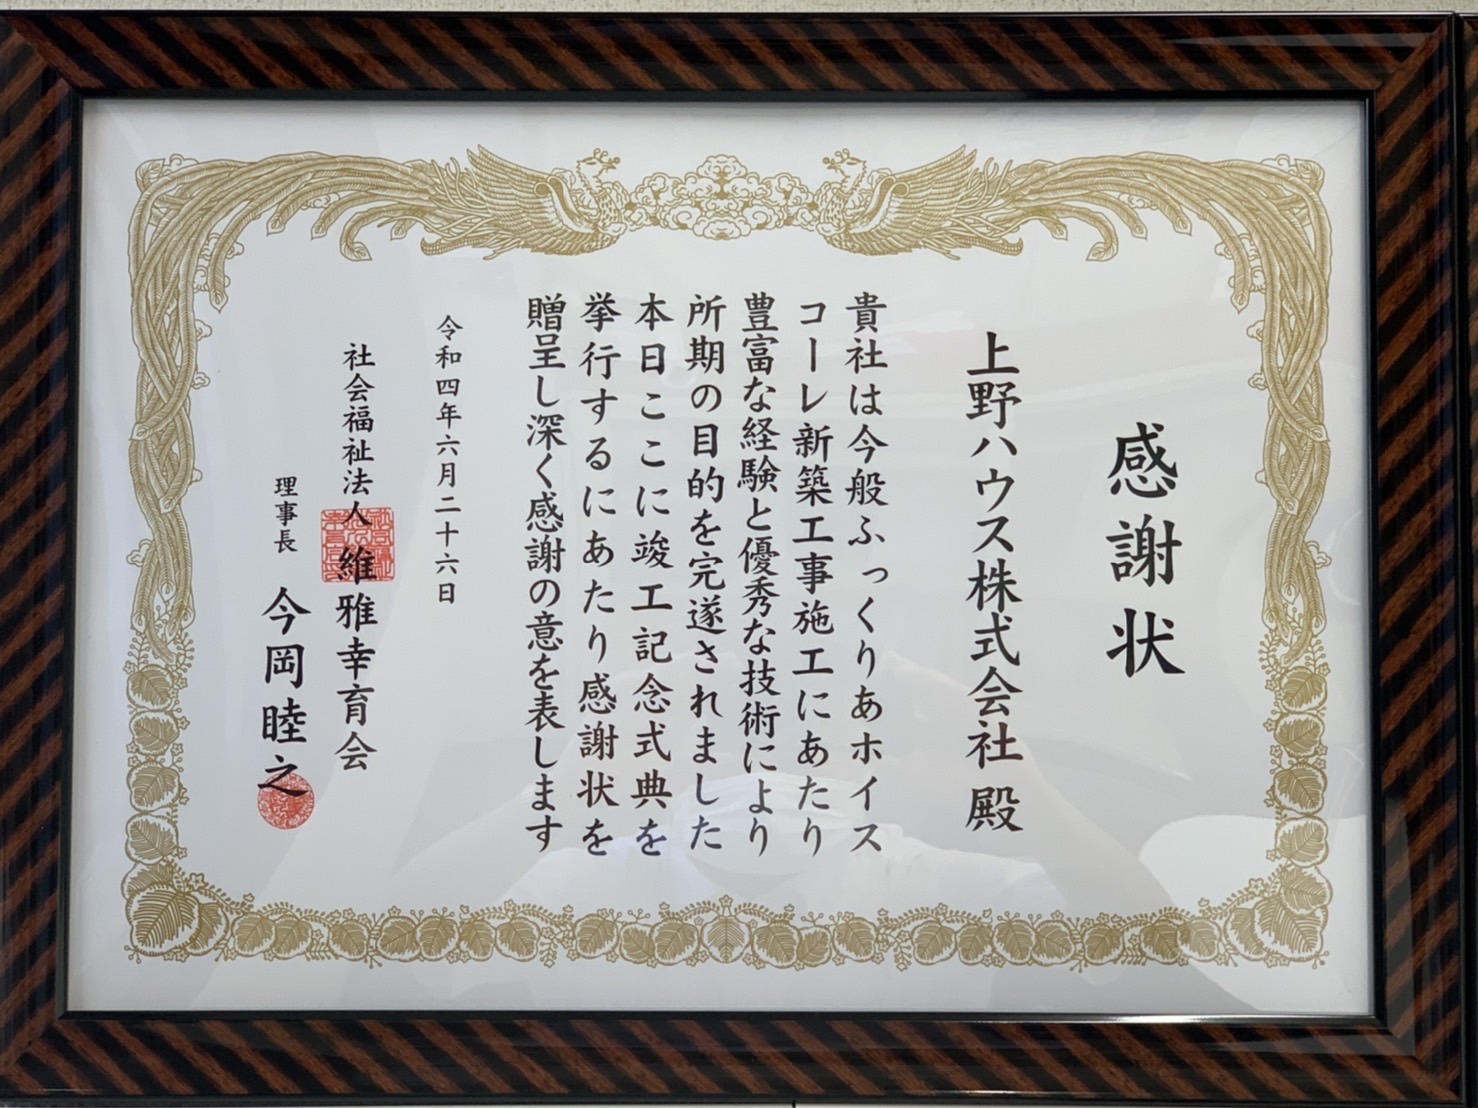 感謝状
上野ハウス株式会社 殿
貴社は今般ふっくりあホイス
コーレ新築工事施工にあたり
豊富な経験と優秀な技術により
所期の目的を完遂されました
本日ここに竣工記念式典を
挙行するにあたり感謝状を
贈呈し深く感謝の意を表します
令和四年六月二十六日
社会福祉法人 維雅幸育会
理事長 今岡睦之